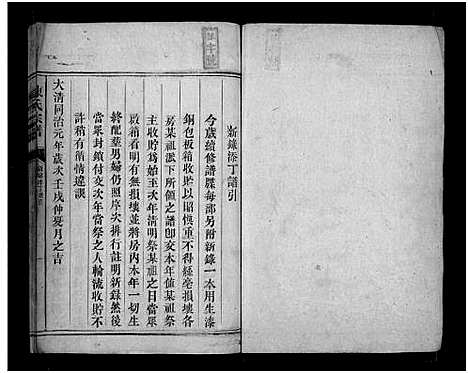 新錄添丁譜引
今歲續修譜牒每部另附新錄一本用生漆
銅包板箱收貯以昭慎重不得絲毫損壞各
房某祖派下所領之譜即交本年值某祖祭
主收貯為始至次年清明祭某祖之日當眾
啟箱看明有無損壞並將房內本年一切生
終配葬男婦仍照序次排行註明新錄然後
當眾封鎖付交次年當祭之人輪流收貯不
許稍有循情違誤
大清同治元年歲次壬戌仲夏月之吉